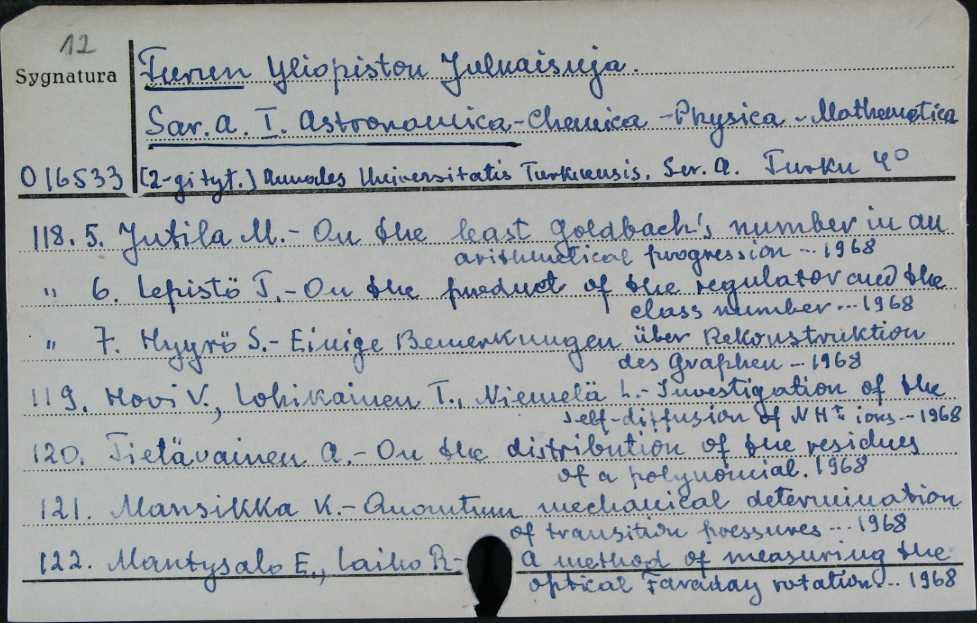 12
Sygnatura
Turun Yliopiston Julkaisuja.
Sar. a. I. Astronomica - Chemica - Physica - Mathematica
016533 [2-gi tyt.] Annales Universitatis Turkuensis. Ser. a. Turku 4°
118. 5. Jutila M. - On the least Goldbach's number in an
arithmetical progression ... 1968
" 6. Lepistö T. - On the product of the regulator and the
class number ... 1968
" 7. Hyyrö S. - Einige Bemerkungen über Rekonstruktion
des Graphen - 1968
119. Hovi V., Lohikainen T., Niemelä L. - Investigation of the
self-diffusion of NH⁺ ions ... 1968
120. Tietäväinen A. - On the distribution of the residues
of a polynomial. 1968
121. Mansikka K. - Quantum mechanical determination
of transition pressures ... 1968
122. Mantysalo E., Laiho R. - A method of measuring the
optical Faraday rotation ... 1968